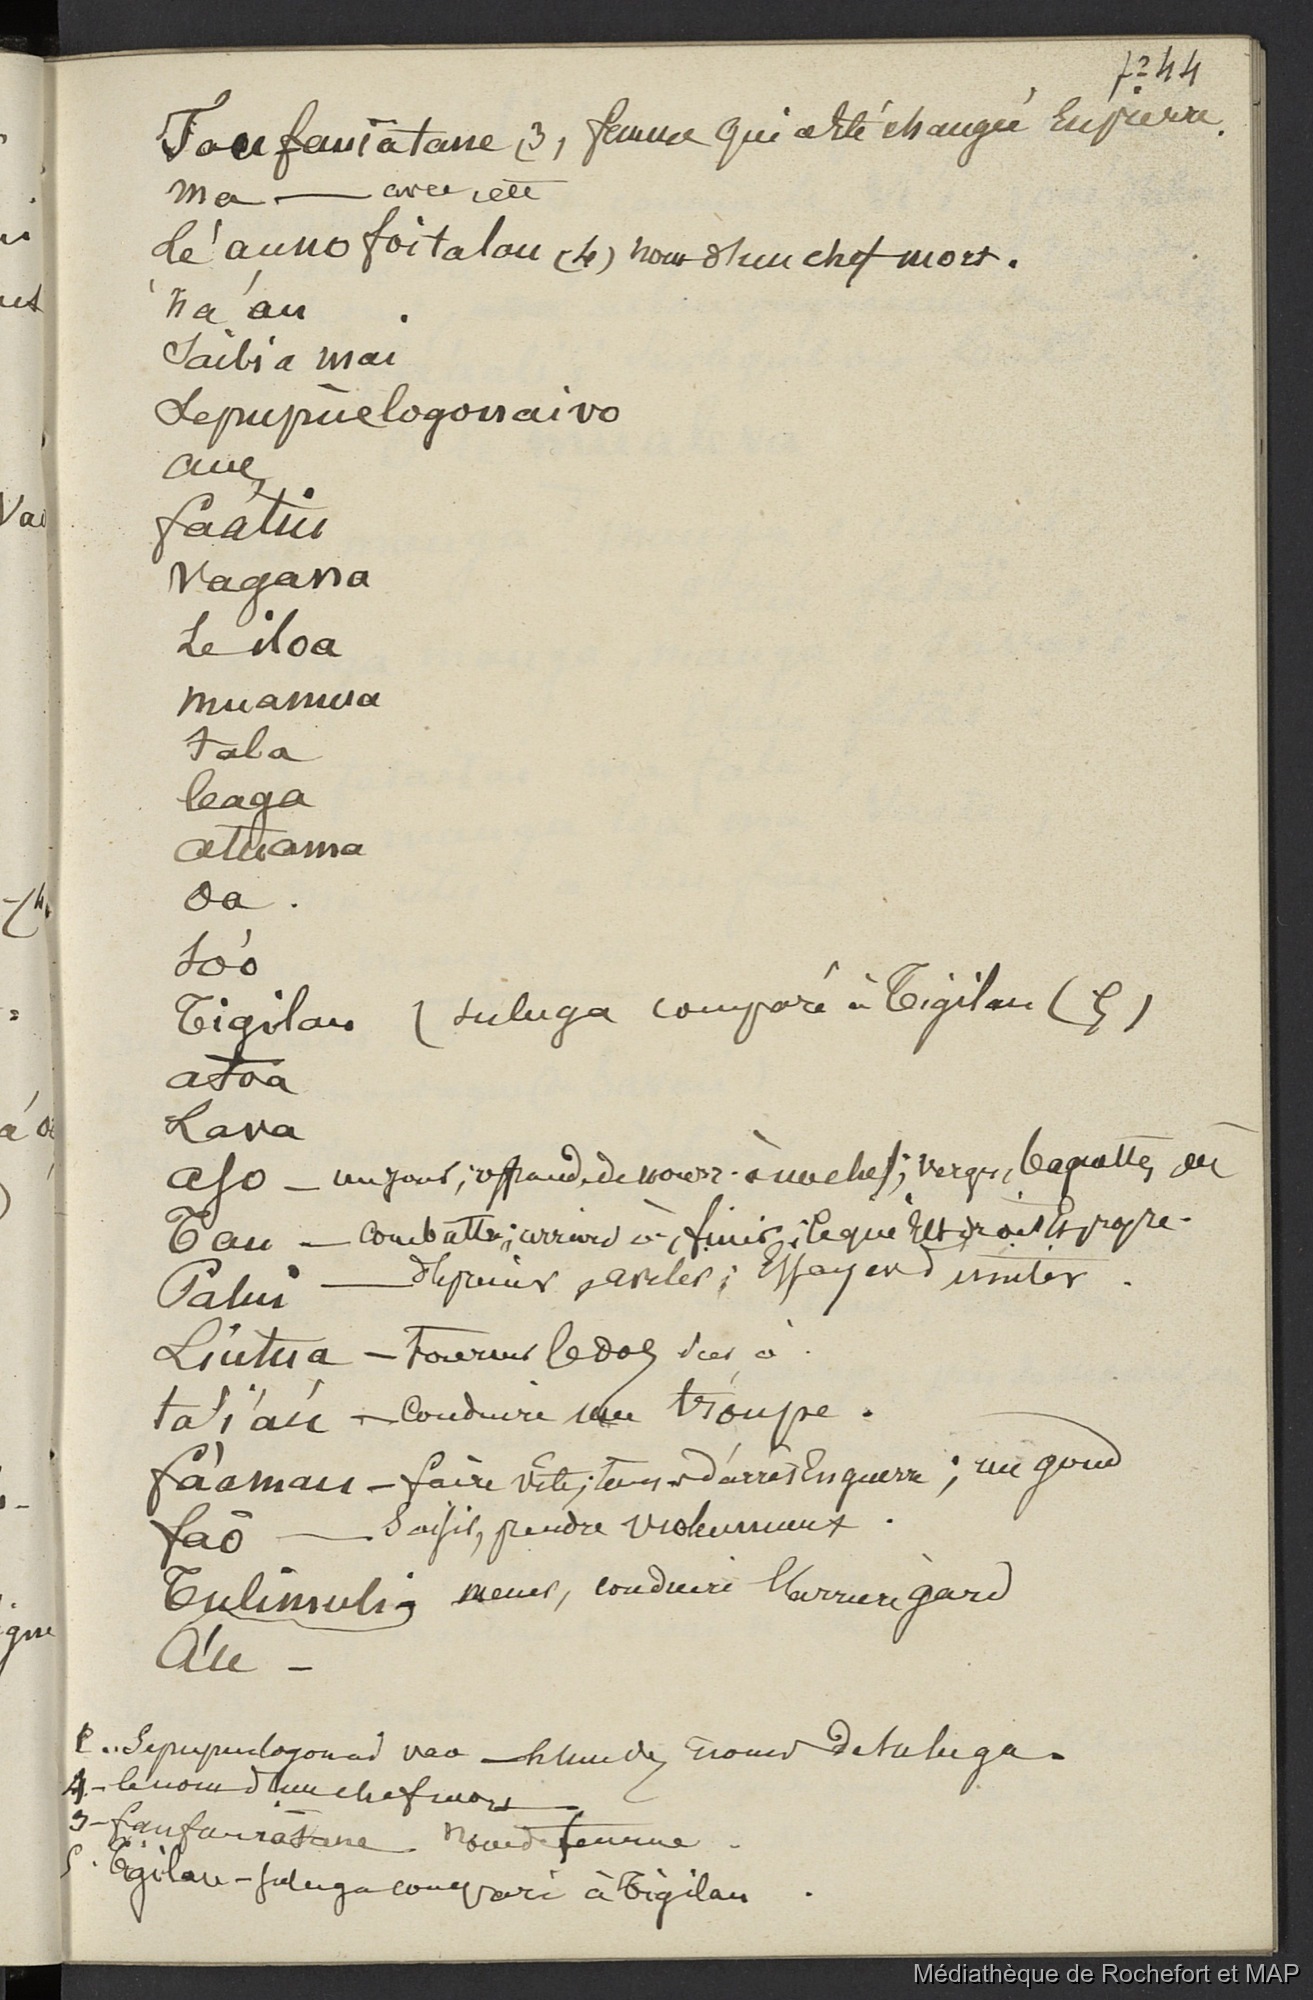 f° 44
Faufauiatane (3) femme qui a été changée en pierre.
ma — avec, et
Lé'aunofoitalau (4) nom d'un chef mort.
na'au
Saili a mai
Lepupuelogonaivo
aue
faátui
vagana
Le iloa
muamua
tala
leaga
atuama
oa.
so'o
Tigilau (suluga comparé à Tigilau (5)
atoa
Lava
aso — un jour; offrande de nourr. à un chef; verge, baguette,
Tau — combattre; arriver à, finir; ce qui est droit et propre.
Palui
Liútua — tourner le dos à
ta'i'aú — conduire une troupe.
fáamau — faire vite; en guerre; un gond
faô — saisir, prendre violemment.
Tulimuli; mener, conduire l'arrière garde
A'u —
Lepupuelogonai vao — l'un des noms de suluga.
4 — le nom d'un chef mort
3 — faufauiatane nom de femme.
5. Tigilau — suluga comparé à Tigilau.
Médiathèque de Rochefort et MAP